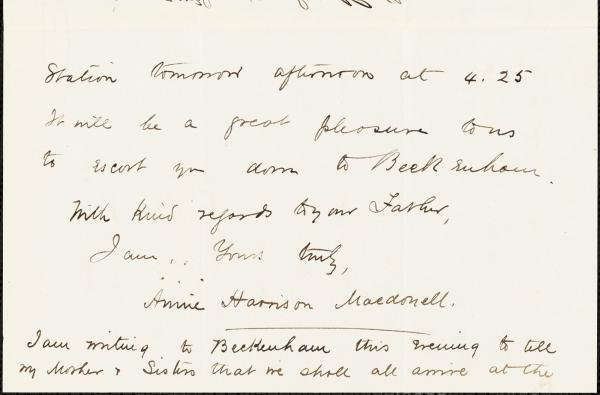 Station tomorrow afternoon at 4.25
It will be a great pleasure to us
to escort you down to Beckenham.
With kind regards to your Father,
I am, Yours truly,
Annie Harrison Macdonell.
I am writing to Beckenham this evening to tell
my Mother & Sisters that we shall all arrive at the